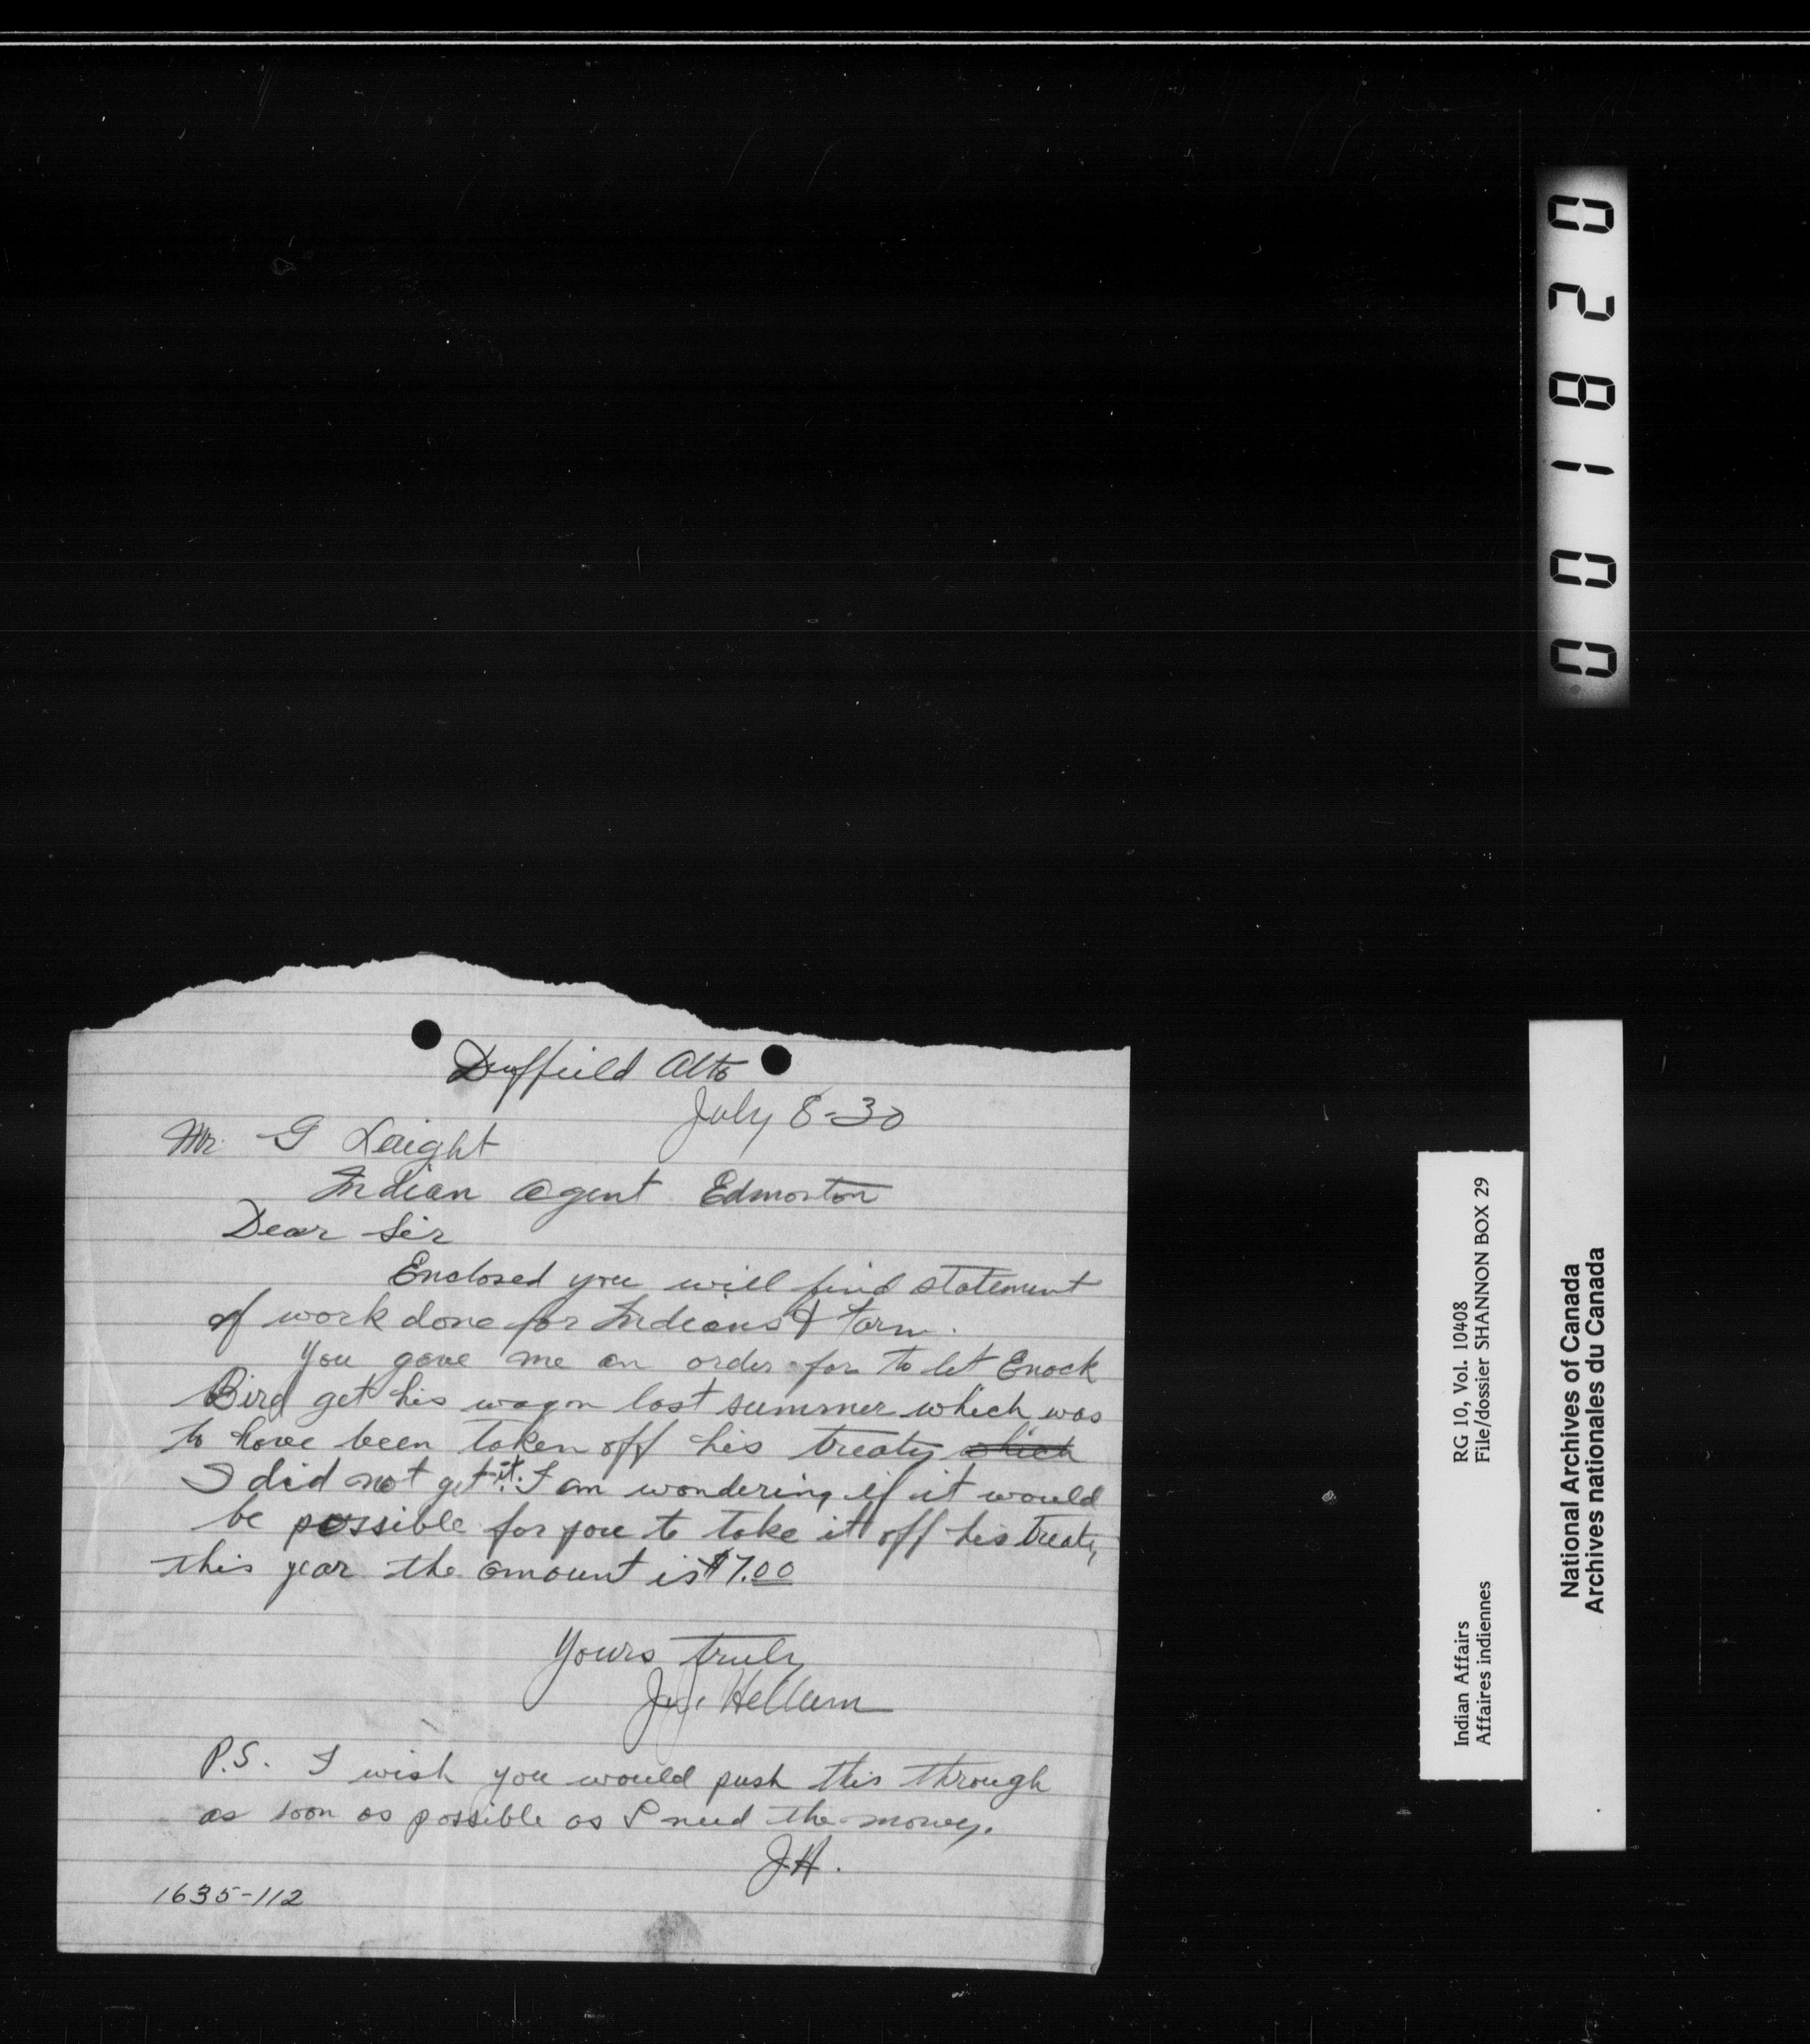 Duffield Alta
July 8-30
Mr. G Laight
Indian Agent Edmonton
Dear Sir
Enclosed you will find statement
of work done for Indians & Farm.
You gave me an order for to let Enock
Bird get his wagon last summer which was
to have been taken off his treaty which
I did not get it. I am wondering if it would
be possible for you to take it off his treaty
this year the amount is $7.00
Yours truly
Hellum
P.S. I wish you would push this through
as soon as possible as I need the money.
J.H.
1635-112
001820
Indian Affairs RG 10, Vol. 10408
Affaires indiennes File/dossier SHANNON BOX 29
National Archives of Canada
Archives nationales du Canada